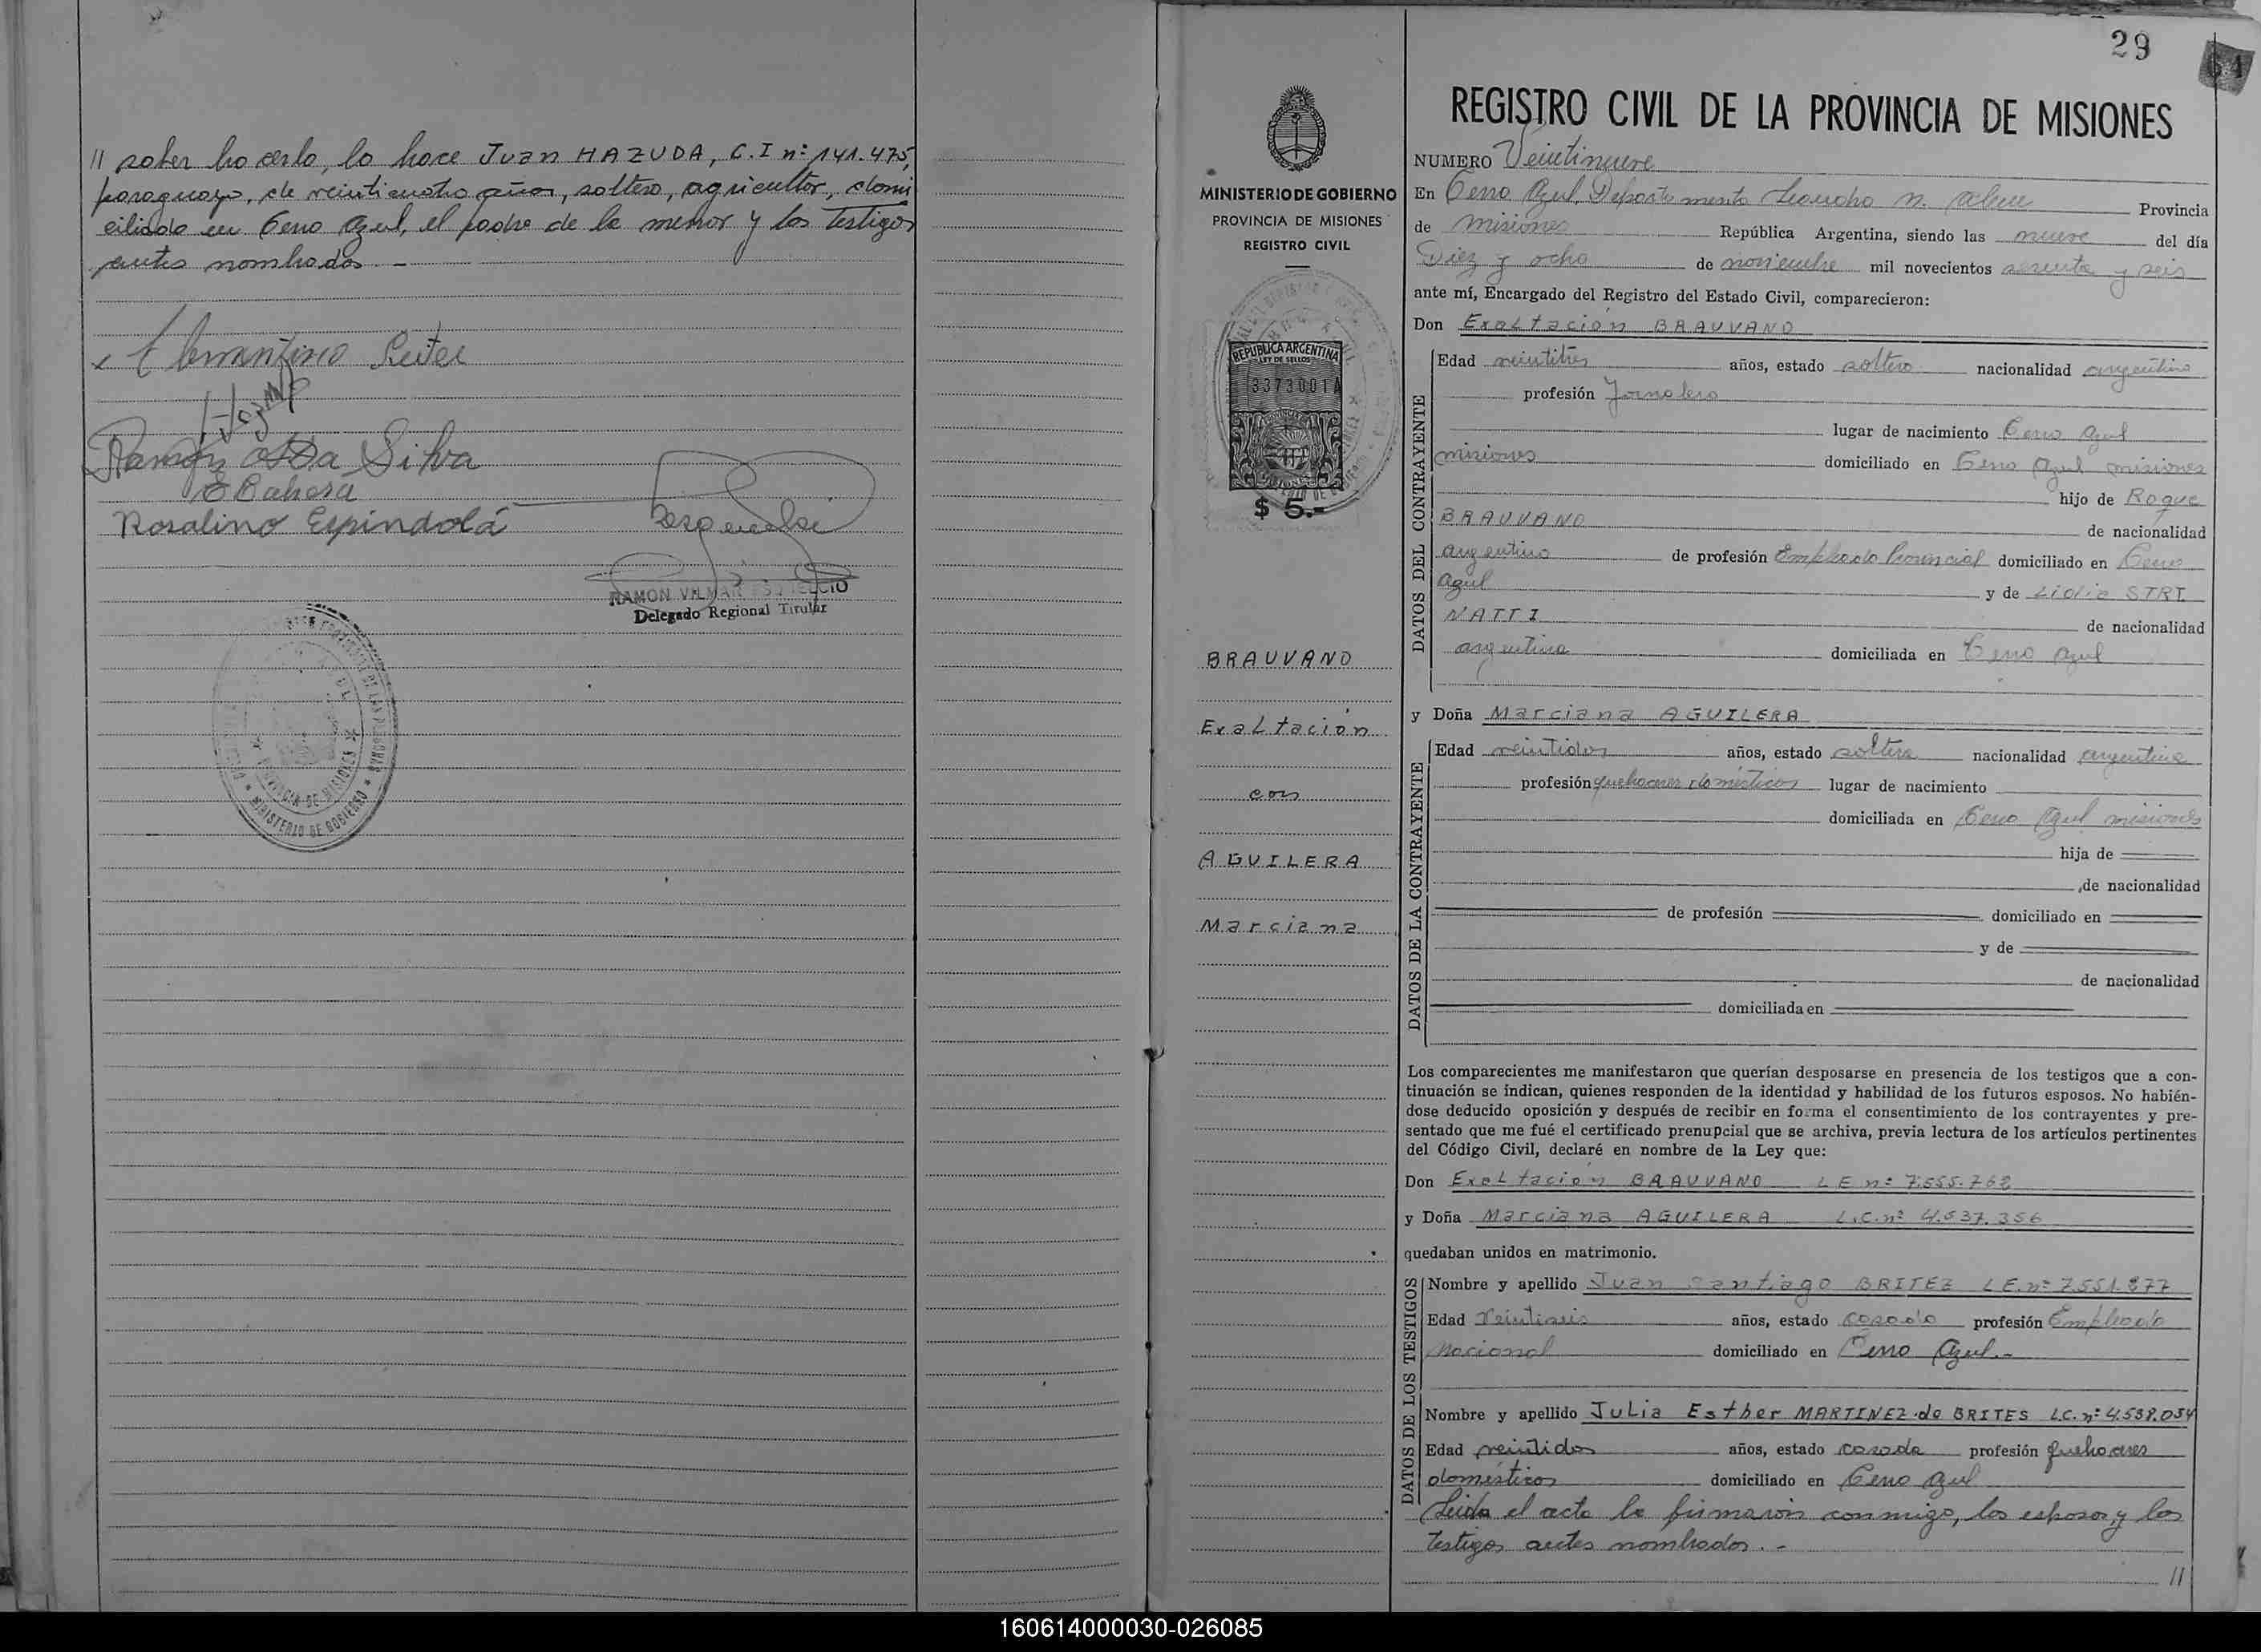 // saber hacerlo, lo hace Juan HAZUDA, C.I nº 141.475,
paraguayo, de veinticuatro años, soltero, agricultor, domi
ciliado en Cerro Azul, el padre de la menor y los testigos
antes nombrados.-
Ramón Silva
Rosalino Espíndola
RAMON VILMAR
Delegado Regional Titular
PROVINCIA DE MISIONES
MINISTERIO DE GOBIERNO
29
MINISTERIO DE GOBIERNO
PROVINCIA DE MISIONES
REGISTRO CIVIL
REPUBLICA ARGENTINA
LEY DE SELLOS
3373001
$ 5.-
BRAUVANO
Exaltación
con
AGUILERA
Marciana
REGISTRO CIVIL DE LA PROVINCIA DE MISIONES
NUMERO Veintinueve
En Cerro Azul, Departamento Leandro N. Alem Provincia
de Misiones República Argentina, siendo las nueve del día
Diez y ocho de noviembre mil novecientos sesenta y seis
ante mí, Encargado del Registro del Estado Civil, comparecieron:
Don Exaltación BRAUVANO
DATOS DEL CONTRAYENTE
Edad veintitrés años, estado soltero nacionalidad argentino
profesión Jornalero
lugar de nacimiento Cerro Azul
misiones domiciliado en Cerro Azul misiones
hijo de Roque
BRAUVANO de nacionalidad
argentino de profesión Empleado Provincial domiciliado en Cerro
Azul y de Lidia STRI
NATTI de nacionalidad
argentina domiciliada en Cerro Azul
y Doña Marciana AGUILERA
DATOS DE LA CONTRAYENTE
Edad veintidos años, estado soltera nacionalidad argentina
profesión quehaceres domésticos lugar de nacimiento
domiciliada en Cerro Azul misiones
hija de
de nacionalidad
de profesión domiciliado en
y de
de nacionalidad
domiciliada en
Los comparecientes me manifestaron que querían desposarse en presencia de los testigos que a con-
tinuación se indican, quienes responden de la identidad y habilidad de los futuros esposos. No habién-
dose deducido oposición y después de recibir en forma el consentimiento de los contrayentes y pre-
sentado que me fué el certificado prenupcial que se archiva, previa lectura de los artículos pertinentes
del Código Civil, declaré en nombre de la Ley que:
Don Exaltación BRAUVANO L E nº 7.555.762
y Doña Marciana AGUILERA L.C. nº 4.537.356
quedaban unidos en matrimonio.
DATOS DE LOS TESTIGOS
Nombre y apellido Juan Santiago BRITEZ L E. nº 7.551.877
Edad Veintiseis años, estado casado profesión Empleado
Nacional domiciliado en Cerro Azul.-
Nombre y apellido Julia Esther MARTINEZ de BRITES L.C. nº 4.538.034
Edad veintidos años, estado casada profesión quehaceres
domésticos domiciliado en Cerro Azul
Leida el acta la firmaron conmigo, los esposos y los
testigos antes nombrados.-
//
160614000030-026085